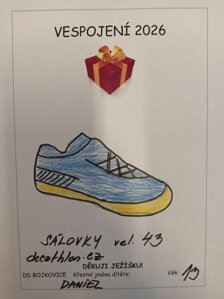 VESPOJENÍ 2026
SÁLOVKY vel. 43
decathlon.cz
DĚKUJI JEŽÍŠKU!
DD BOJKOVICE Křestní jméno dítěte: Věk: 13
DANIEL